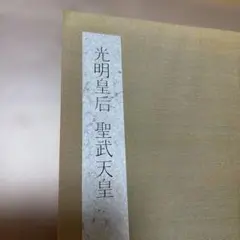 光明皇后 聖武天皇